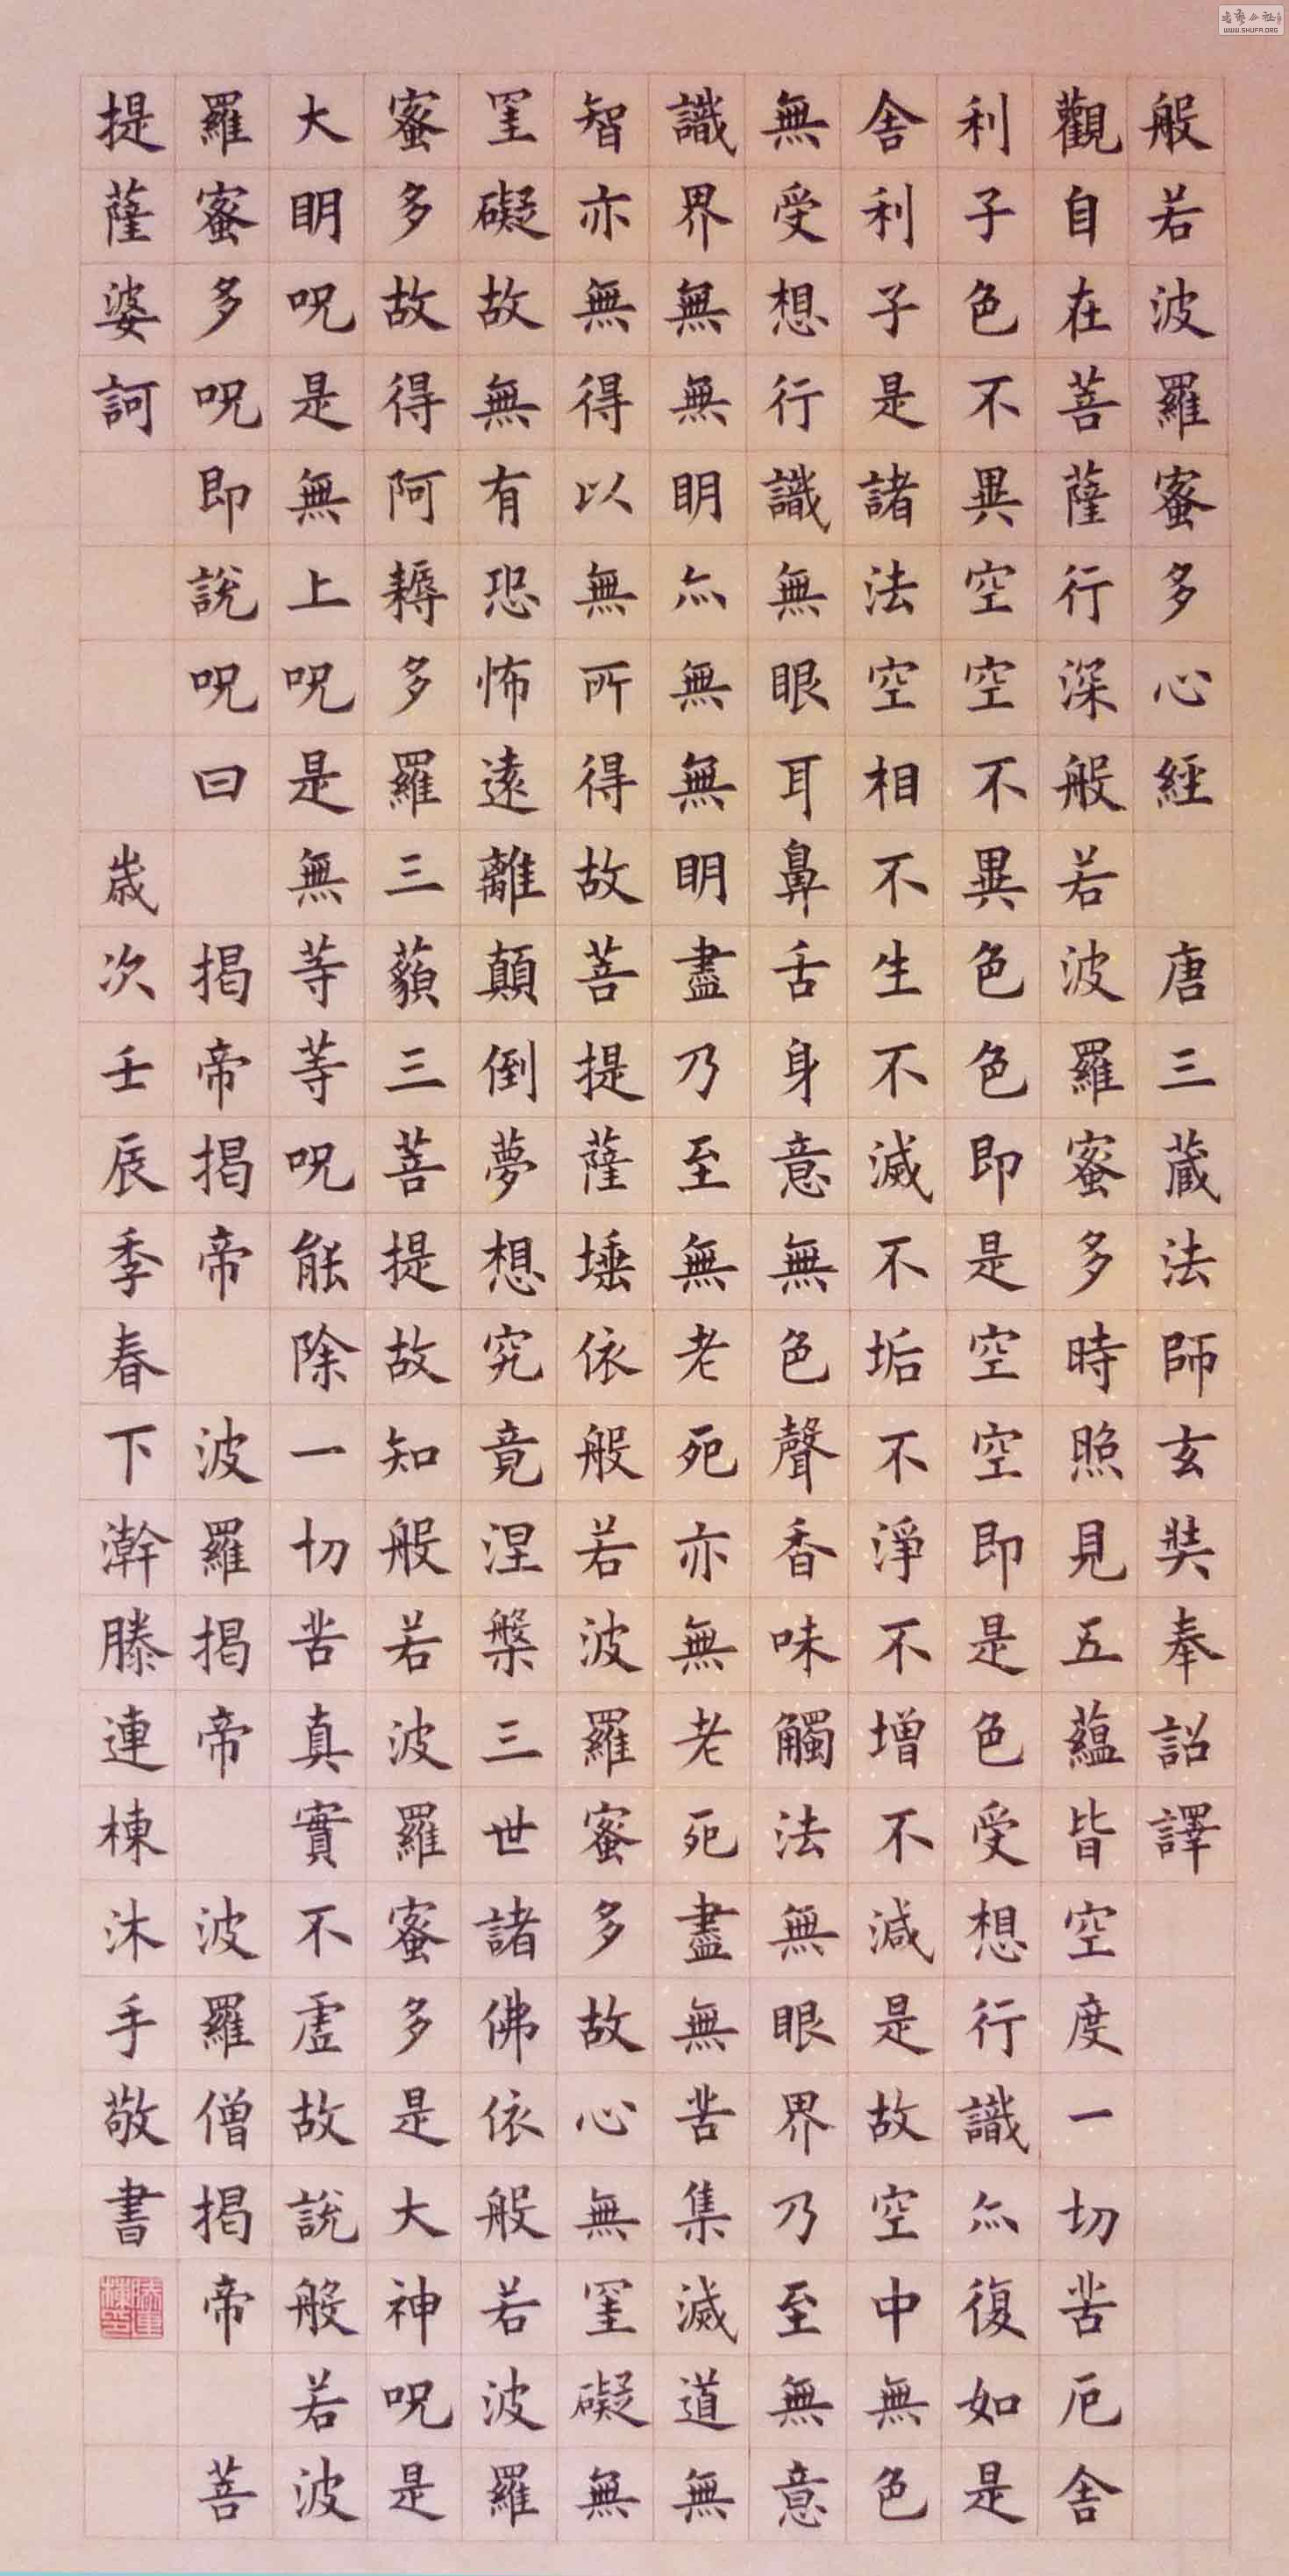 般若波羅蜜多心經 唐三藏法師玄奘奉詔譯
觀自在菩薩行深般若波羅蜜多時照見五蘊皆空度一切苦厄舍
利子色不異空空不異色色即是空空即是色受想行識亦復如是
舍利子是諸法空相不生不滅不垢不淨不增不減是故空中無色
無受想行識無眼耳鼻舌身意無色聲香味觸法無眼界乃至無意
識界無無明亦無無明盡乃至無老死亦無老死盡無苦集滅道無
智亦無得以無所得故菩提薩埵依般若波羅蜜多故心無罣礙無
罣礙故無有恐怖遠離顛倒夢想究竟涅槃三世諸佛依般若波羅
蜜多故得阿耨多羅三藐三菩提故知般若波羅蜜多是大神呪是
大明呪是無上呪是無等等呪能除一切苦真實不虛故說般若波
羅蜜多呪即說呪曰 揭帝揭帝 波羅揭帝 波羅僧揭帝 菩
提薩婆訶 歲次壬辰季春下澣滕連棟沐手敬書
WWW.SHUFA.ORG